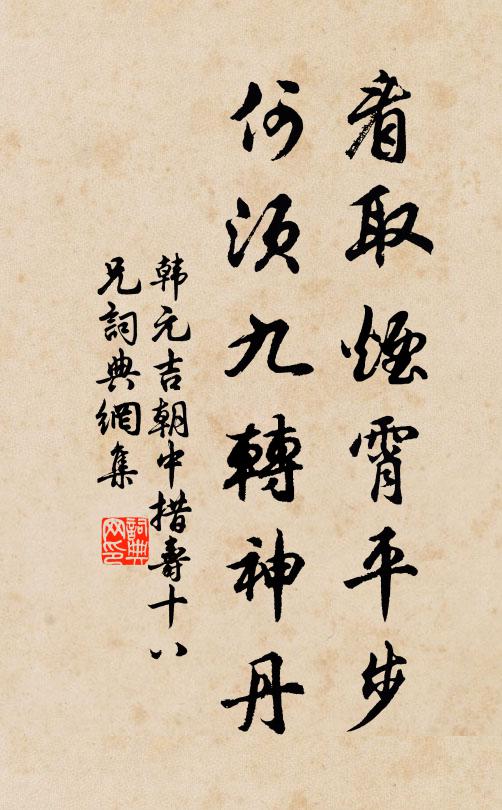 看取煙霄平步
何須九轉神丹
韩元吉朝中措壽十八
兄詞典網集
詞典
网印